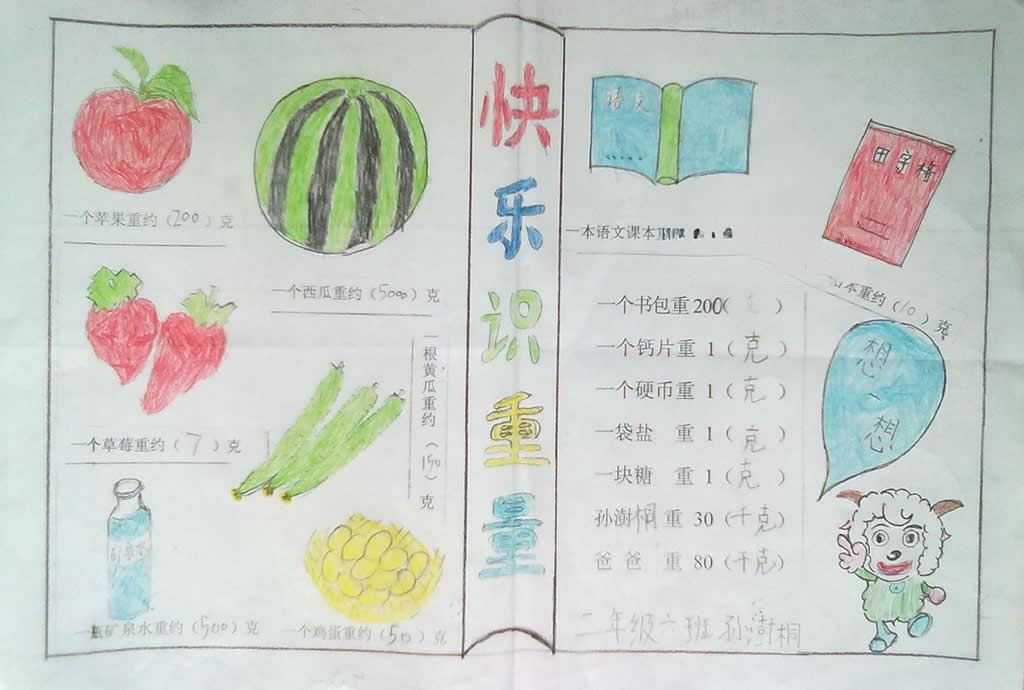 快乐识重量
一个苹果重约（200）克
一个西瓜重约（5000）克
一个草莓重约（7）克
一根黄瓜重约（150）克
一瓶矿泉水重约（500）克
一个鸡蛋重约（50）克
语文
一本语文课本
田字格
本重约（10）克
一个书包重 200（ ）
一个钙片重 1（克）
一个硬币重 1（克）
一袋盐 重 1（克）
一块糖 重 1（克）
孙澍桐 重 30（千克）
爸爸 重 80（千克）
想一想
二年级六班 孙澍桐